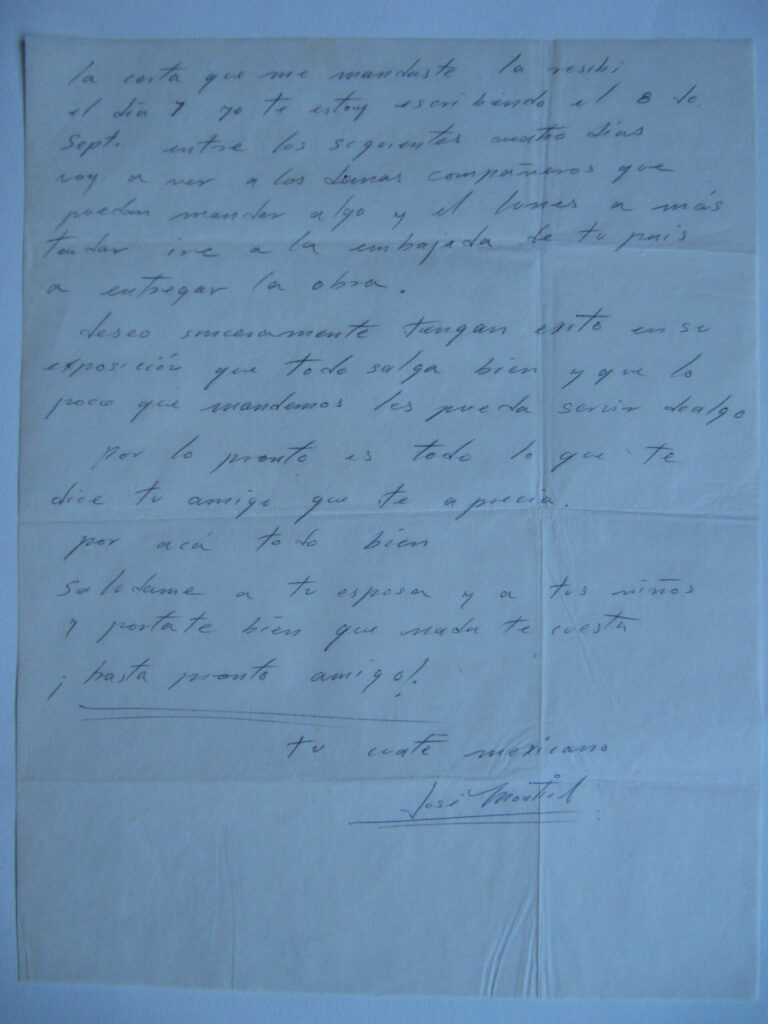 la carta que me mandaste la resibi
el día 7 yo te estoy escribiendo el 8 de
Sept. entre los siguientes cuatro dias
voy a ver a los demas compañeros que
puedan mandar algo y el lunes a más
tardar ire a la embajada de tu pais
a entregar la obra.
deseo sinceramente tengan exito en su
exposición que todo salga bien y que lo
poco que mandemos les pueda servir de algo
Por lo pronto es todo lo que te
dice tu amigo que te aprecia.
por acá todo bien
Saludame a tu esposa y a tus niños
y portate bien que nada te cuesta
¡hasta pronto amigo!.
tu cuate mexicano
José